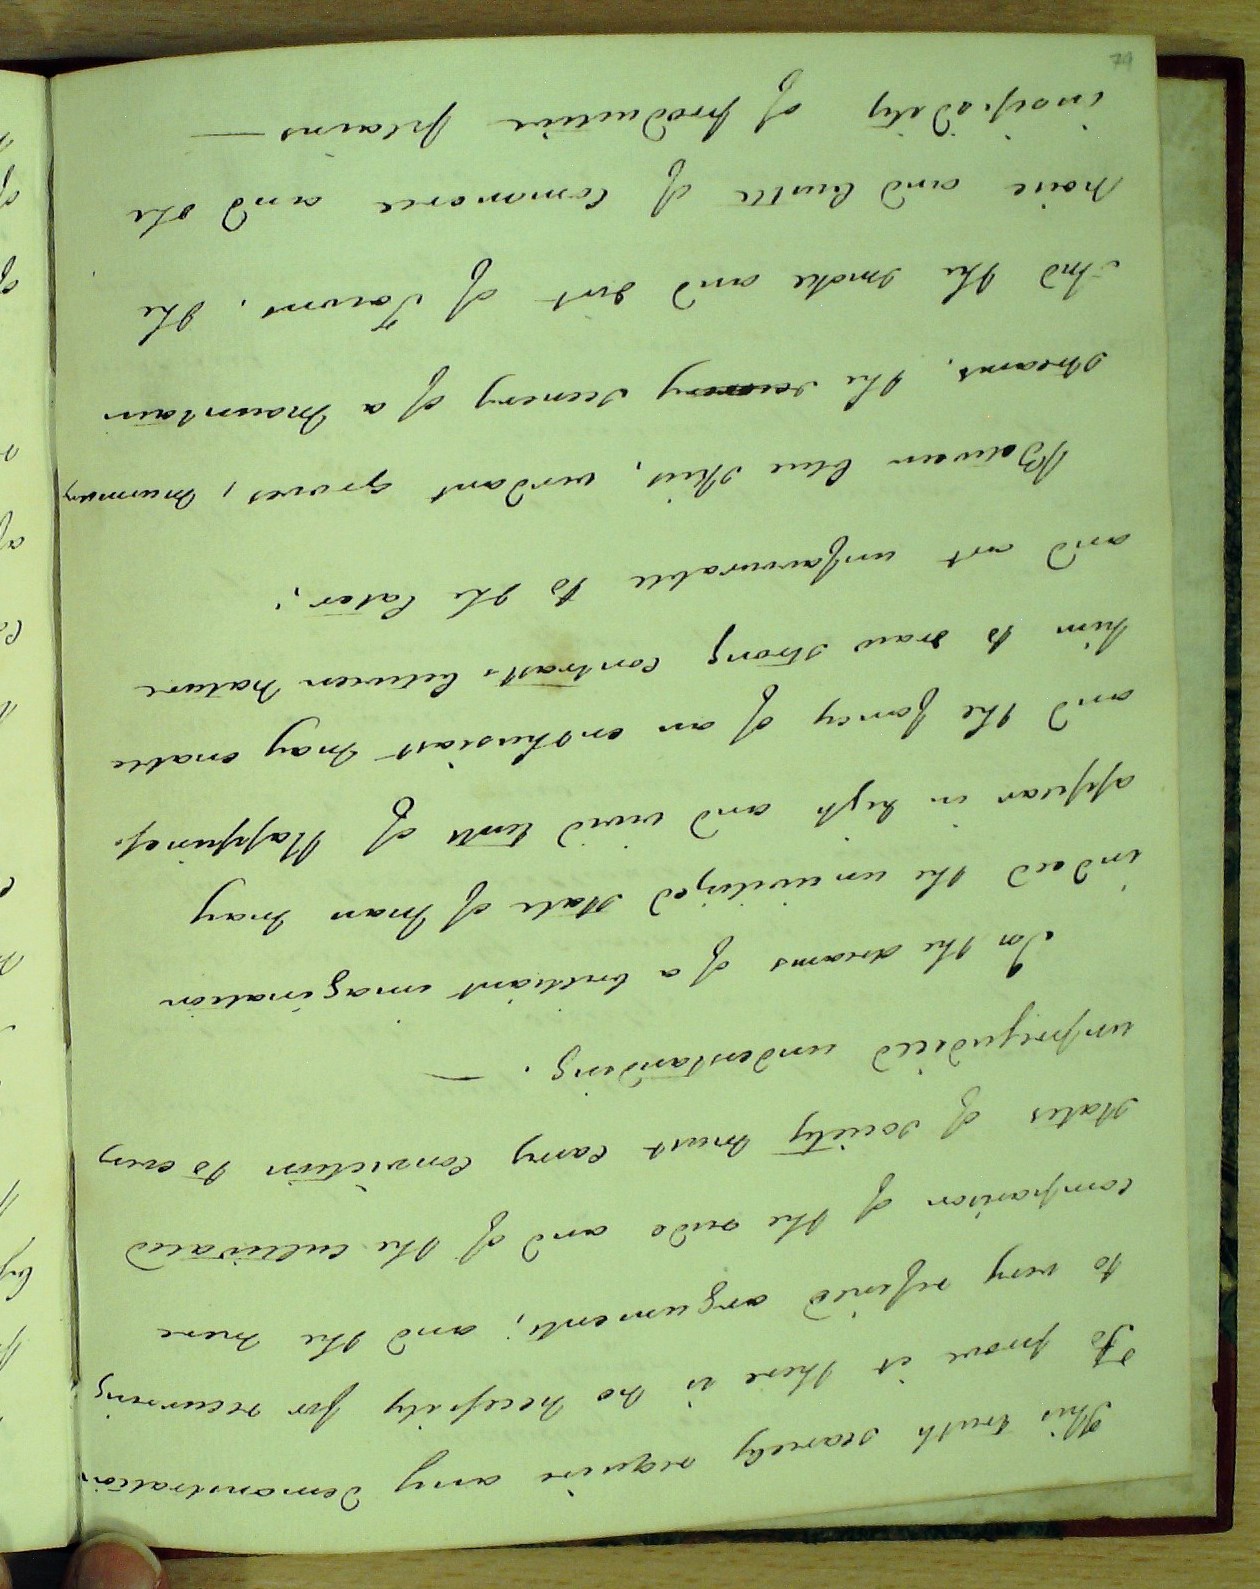 This truth scarcely require any demonstration
To prove it there is no necessity for recurring
to very refined arguments; and the mere
comparison of the rude and of the cultivated
states of society must carry conviction to every
unprejudiced understanding. —
In the dreams of a brilliant imagination
indeed the uncivilized state of man may
appear in high and vivid tints of Happiness.
and the fancy of an enthusiast may enable
him to draw strong contrasts between nature
and art unfavourable to the later;
Between blue skies, verdant groves, murmury
streams, the scenery scenery of a mountain
And the smoke and dirt of Towns, the
noise and bustle of Commerce and the
insipidity of productive plains —
79